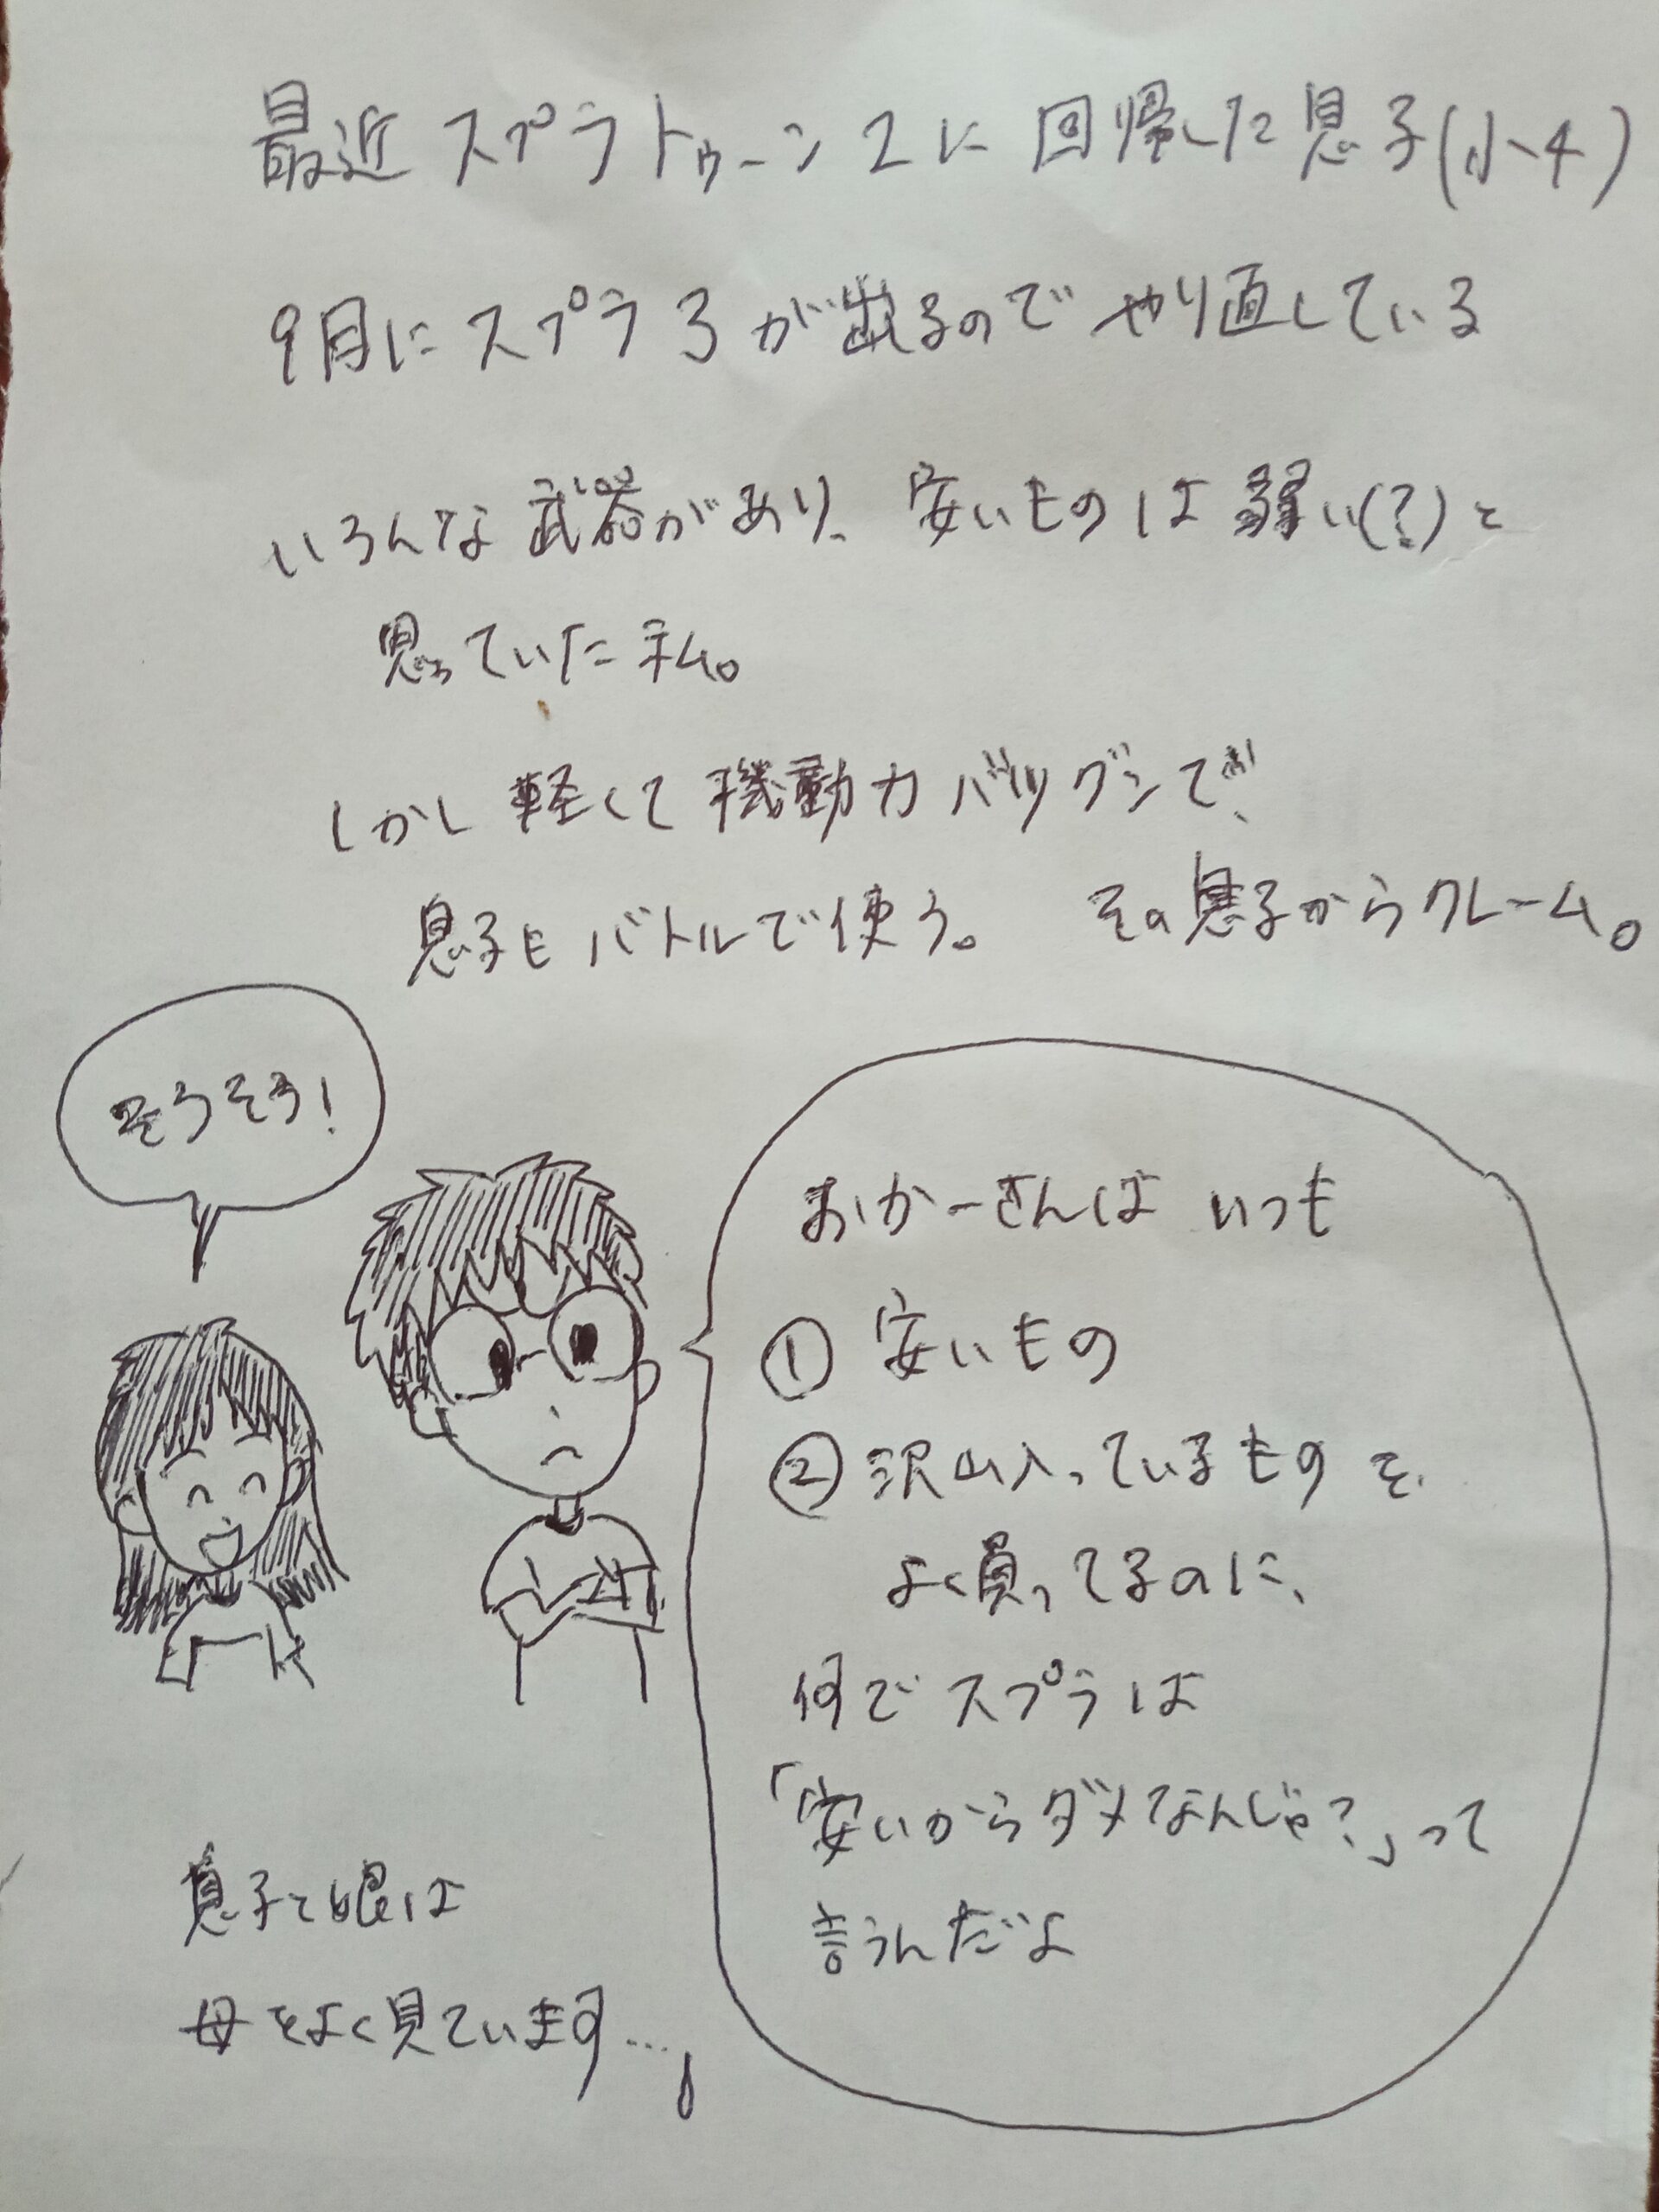 最近スプラトゥーン2に回帰した息子(小4)
9月にスプラ3が出るのでやり直している
いろんな武器があり、安いものは弱い(?)と
思っていた私。
しかし軽くて機動力バツグンで、
息子もバトルで使う。 その息子からクレーム。
そうそう!
おかーさんは いつも
① 安いもの
② 沢山入っているものを
よく買ってるのに、
何でスプラは
「安いからダメなんじゃ?」って
言うんだよ
息子と娘は
母をよく見ています…